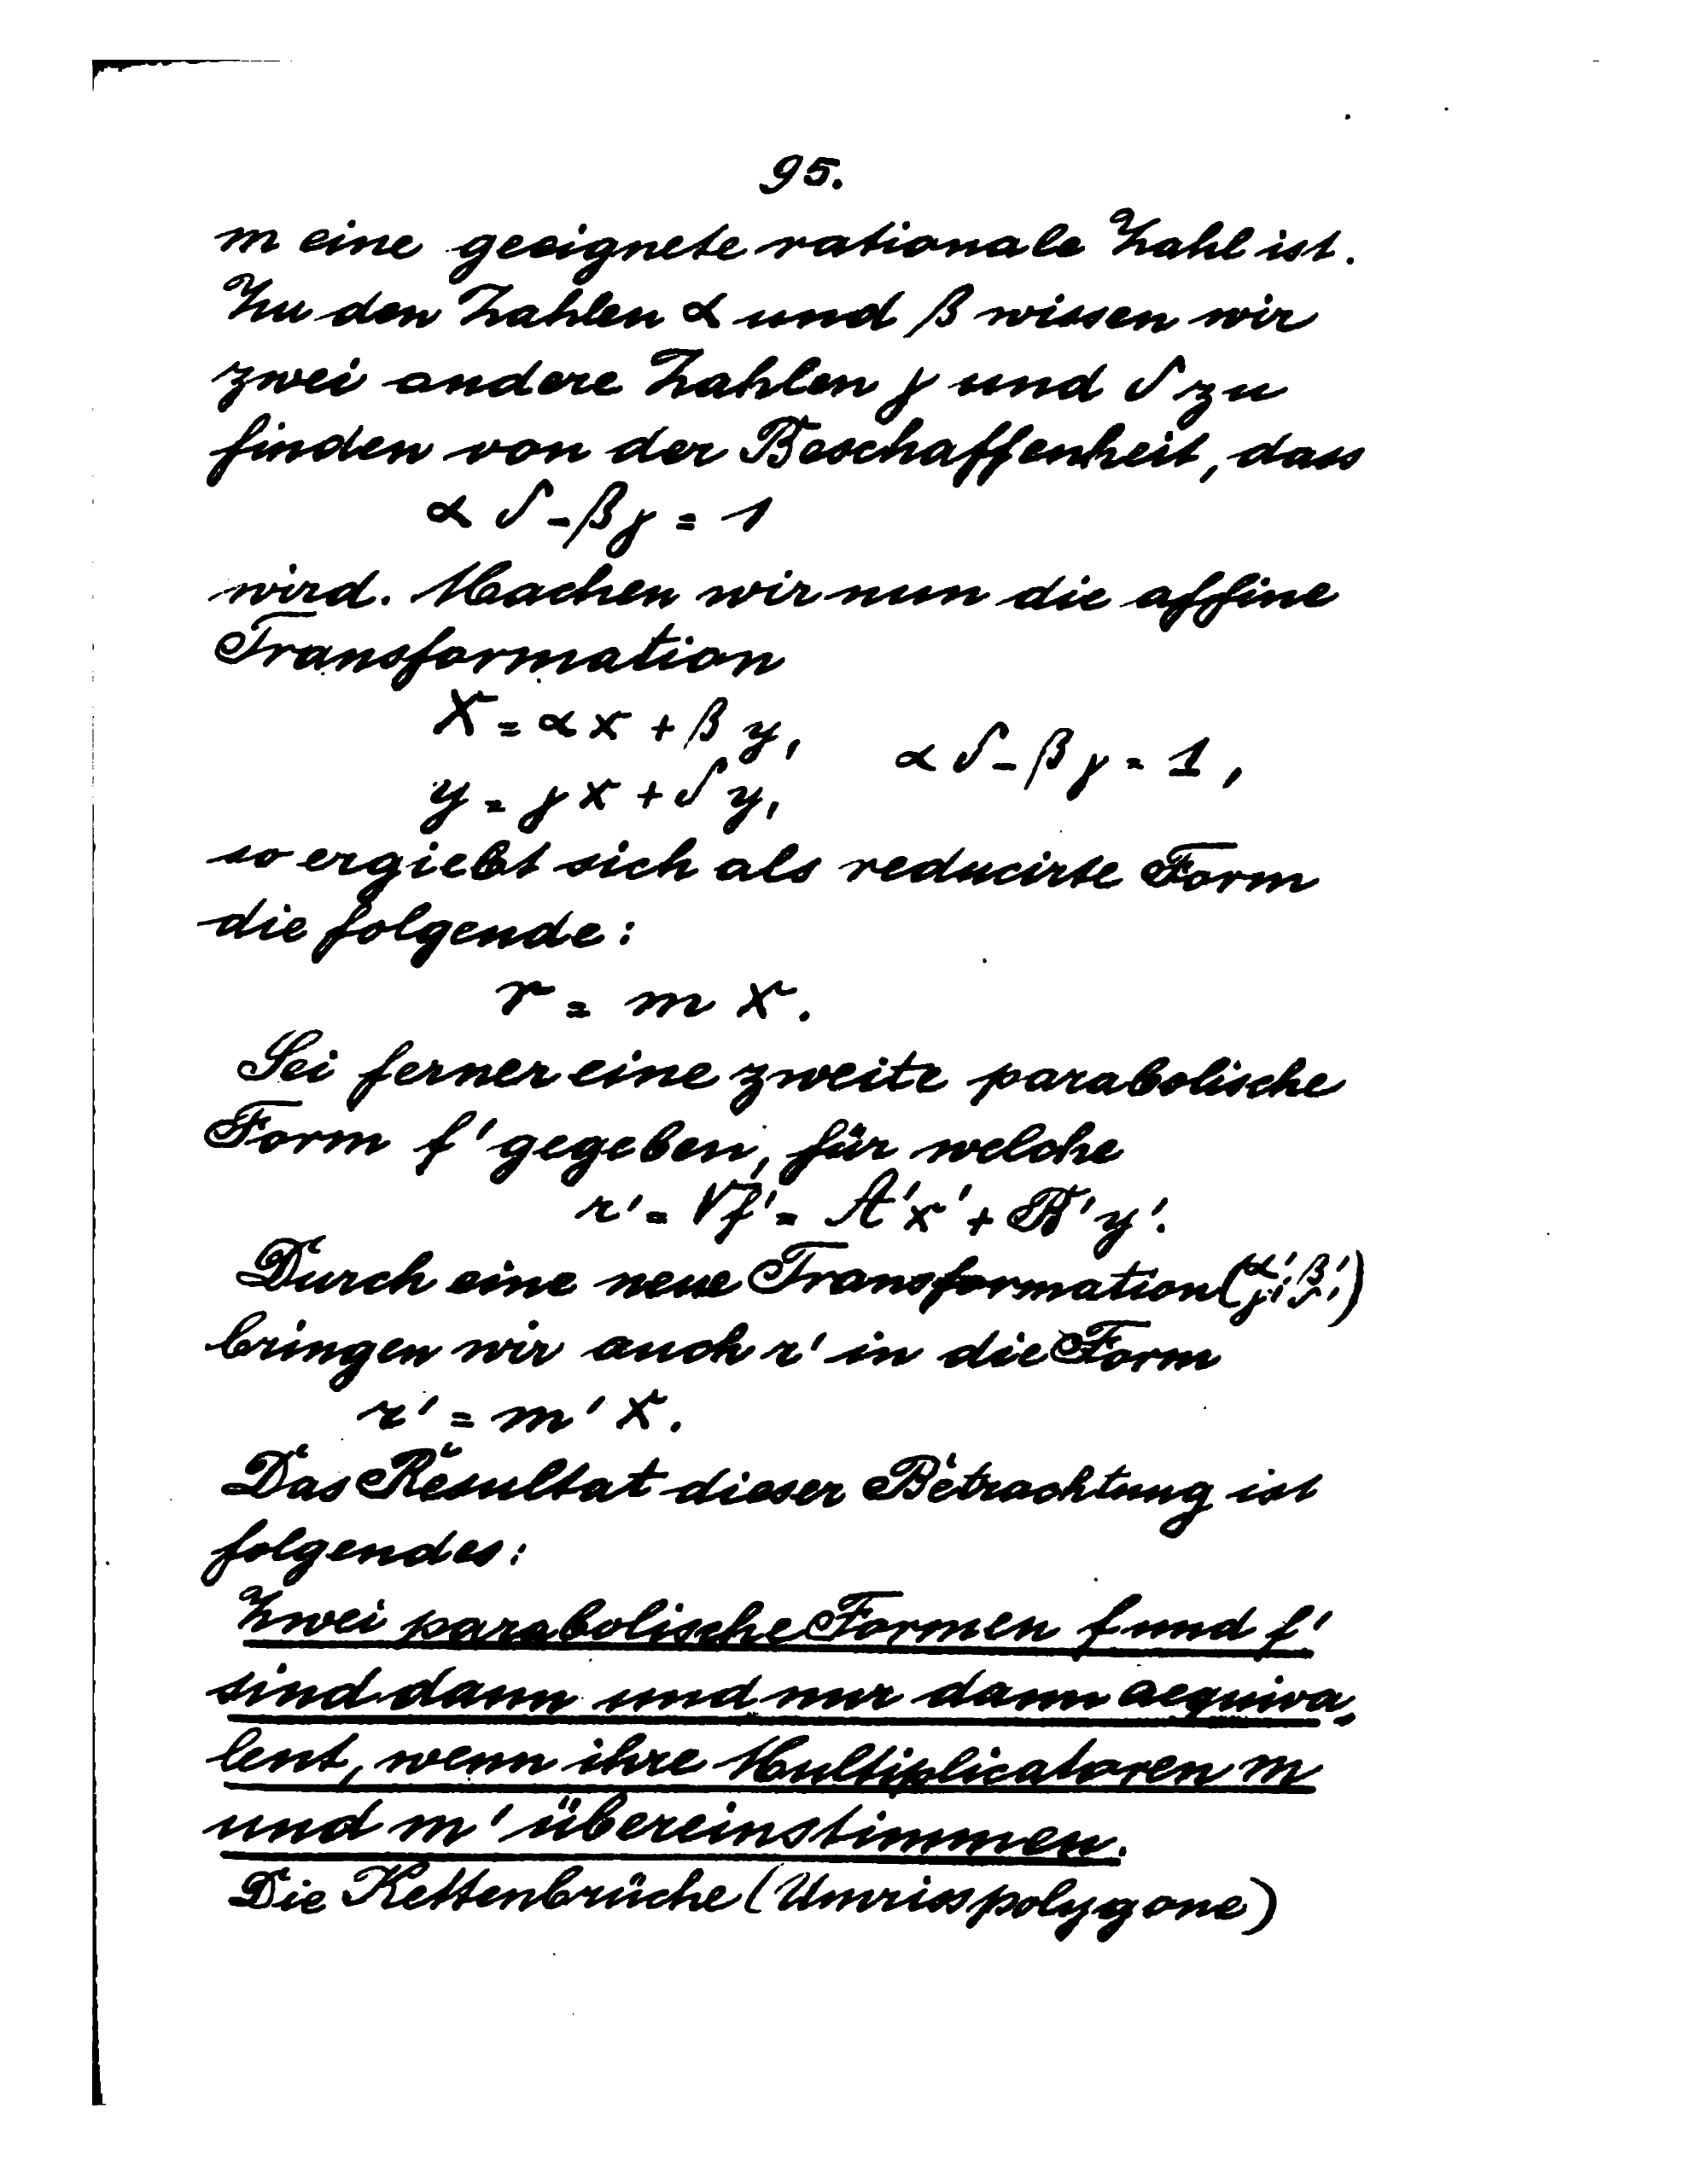 95.
m eine geeignete rationale Zahl ist.
Zu den Zahlen α und β wissen wir
zwei andere Zahlen γ und δ zu
finden von der Beschaffenheit, dass
α δ - β γ = 1
wird. Machen wir nun die affine
Transformation
X = α x + β y,
α δ - β γ = 1,
y = γ x + δ y,
so ergiebt sich als reducirte Form
die folgende:
r = m X.
Sei ferner eine zweite parabolische
Form f' gegeben, für welche
r' = √f' = A'x' + B'y'.
Durch eine neue Transformation (α', β', γ', δ')
bringen wir auch r' in die Form
r' = m' X.
Das Resultat dieser Betrachtung ist
folgendes:
Zwei parabolische Formen f und f'
sind dann und nur dann aequiva-
lent, wenn ihre Multiplicatoren m
und m' übereinstimmen.
Die Kettenbrüche (Umrisspolygone)